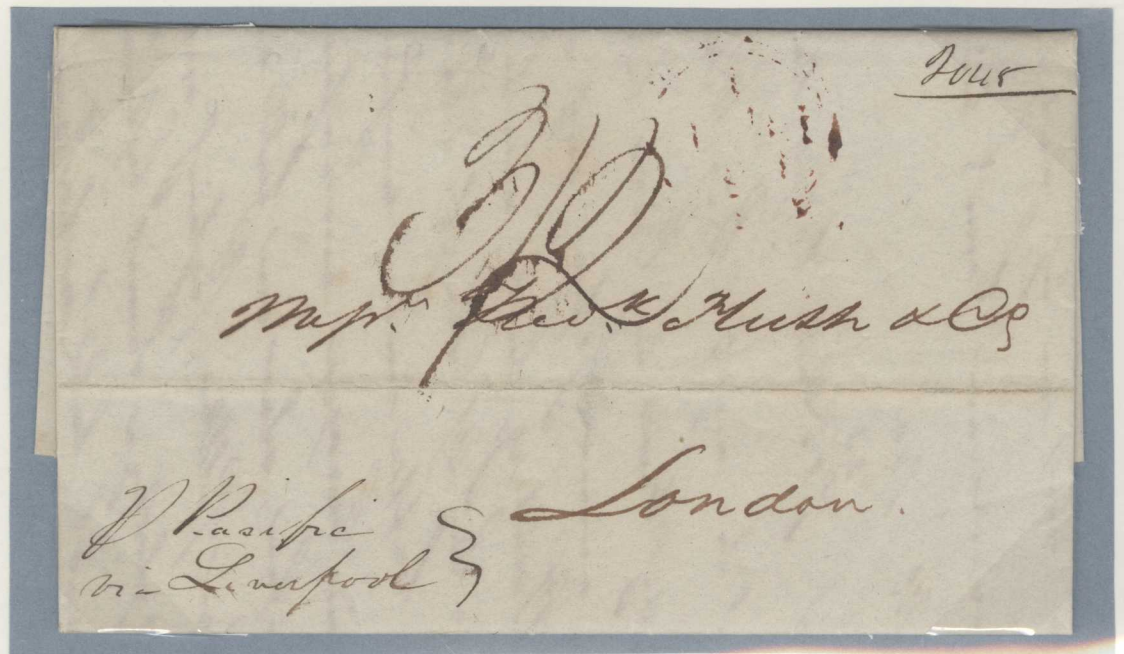 Four
Messrs. Fredk. Huth & Co
London.
P Pacific
via Liverpool